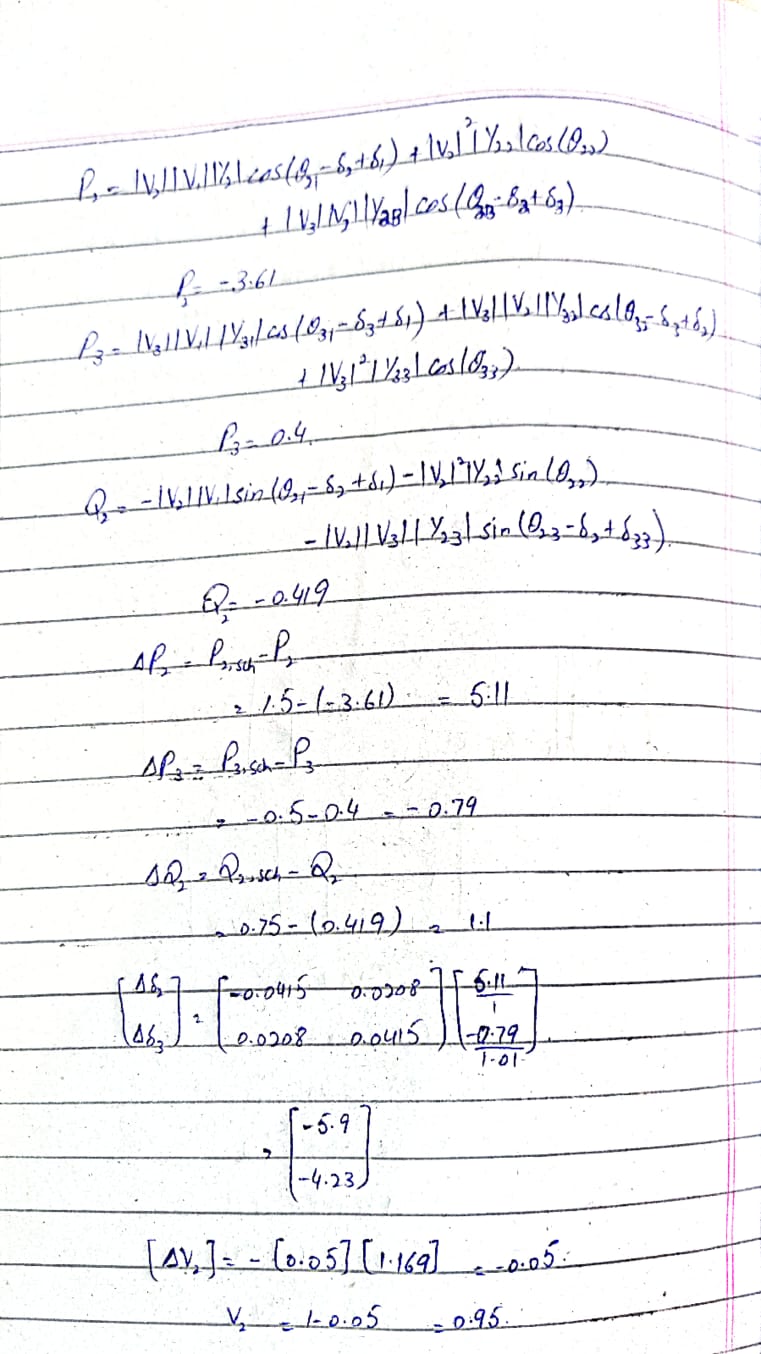 P₂ = |V₂||V₁||Y₂₁|cos(θ₂₁-δ₂+δ₁) + |V₂|²|Y₂₂|cos(θ₂₂)
+ |V₂||V₃||Y₂₃|cos(θ₂₃-δ₂+δ₃)
P₂ = -3.61
P₃ = |V₃||V₁||Y₃₁|cos(θ₃₁-δ₃+δ₁) + |V₃||V₂||Y₃₂|cos(θ₃₂-δ₃+δ₂)
+ |V₃|²|Y₃₃|cos(θ₃₃)
P₃ = 0.4
Q₂ = -|V₂||V₁|sin(θ₂₁-δ₂+δ₁) - |V₂|²|Y₂₂| sin(θ₂₂)
- |V₂||V₃||Y₂₃|sin(θ₂₃-δ₂+δ₃₃)
Q₂ = -0.419
ΔP₂ = P₂,sch - P₂
= 1.5-(-3.61) = 5.11
ΔP₃ = P₃,sch - P₃
= -0.5-0.4 = -0.79
ΔQ₂ = Q₂,sch - Q₂
= 0.75-(0.419) = 1.1
[Δδ₂ Δδ₃] = [-0.0415 0.0208 0.0208 0.0415] [5.11/1 -0.79/1.01]
= [-5.9 -4.23]
[ΔV₂] = -[0.05][1.169] = -0.05
V₂ = 1-0.05 = 0.95